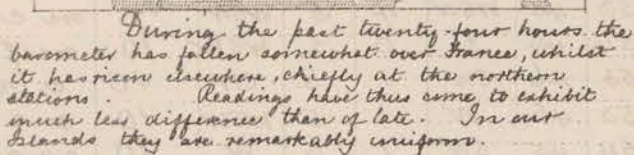 During the past twenty-four hours the
barometer has fallen somewhat over France, whilst
it has risen elsewhere, chiefly at the northern
stations. Readings have thus come to exhibit
much less difference than of late. In our
Islands they are remarkably uniform.